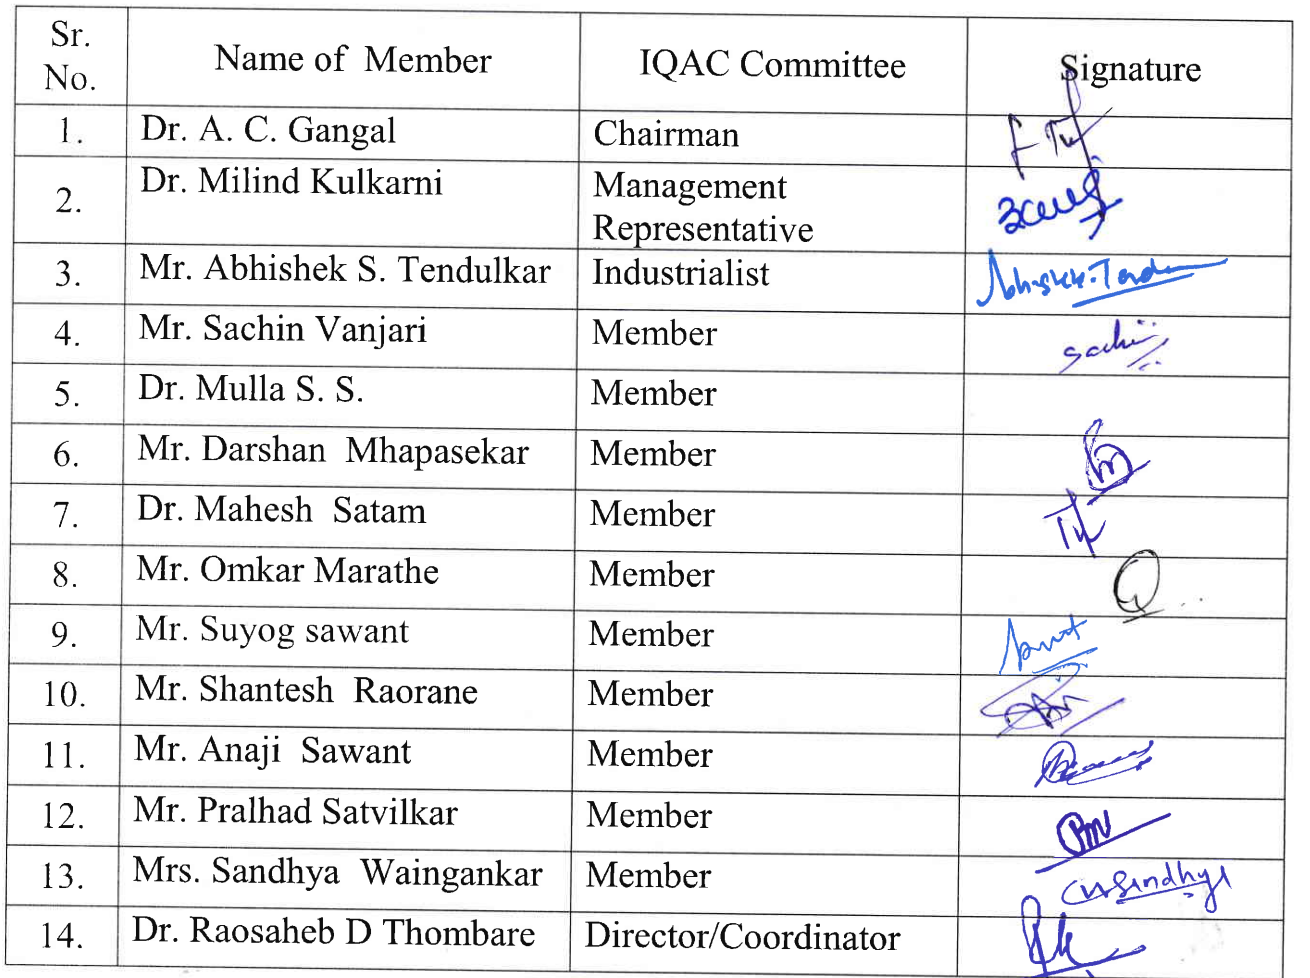 Sr. No. Name of Member IQAC Committee Signature
1. Dr. A. C. Gangal Chairman
2. Dr. Milind Kulkarni Management Representative
3. Mr. Abhishek S. Tendulkar Industrialist
4. Mr. Sachin Vanjari Member
5. Dr. Mulla S. S. Member
6. Mr. Darshan Mhapasekar Member
7. Dr. Mahesh Satam Member
8. Mr. Omkar Marathe Member
9. Mr. Suyog sawant Member
10. Mr. Shantesh Raorane Member
11. Mr. Anaji Sawant Member
12. Mr. Pralhad Satvilkar Member
13. Mrs. Sandhya Waingankar Member
14. Dr. Raosaheb D Thombare Director/Coordinator